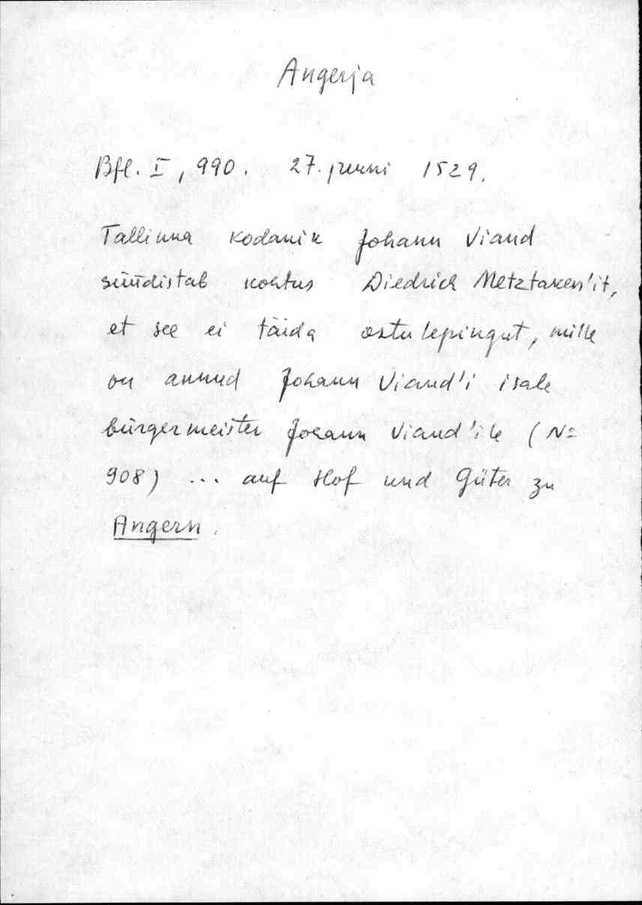 Angerja
Bfl. I, 990. 27. juuni 1529.
Tallinna kodanik Johann Viand
süüdistab kohtus Diedrich Metztaken'it,
et see ei täida ostulepingut, mille
on annud Johann Viand'i isale
bürgermeister Johann Viand'ile (No
908) ... auf Hof und Güter zu
Angern.